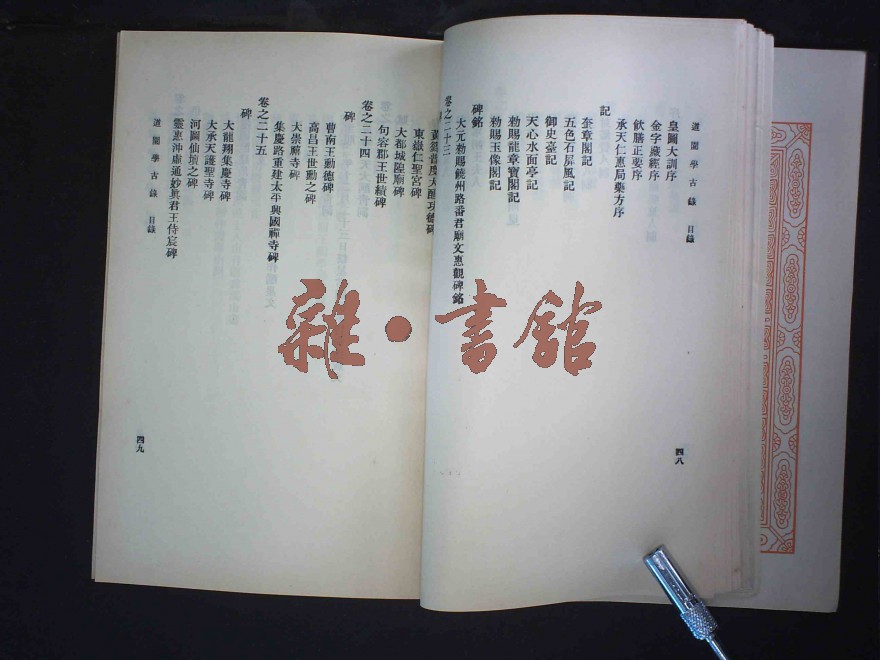 道園學古錄 目錄
皇圖大訓序
金字藏經序
飲膳正要序
承天仁惠局藥方序
記
奎章閣記
五色石屏風記
御史臺記
天心水面亭記
勑賜龍章寶閣記
勑賜玉像閣記
碑銘
卷之二十三
大元勑賜饒州路番君廟文惠觀碑銘
四八
黃籙普度大醮功德碑
東嶽仁聖宮碑
大都城隍廟碑
句容郡王世績碑
卷之二十四
碑
曹南王勳德碑
高昌王世勳之碑
大崇禧寺碑
集慶路重建太平興國禪寺碑
卷之二十五
碑
大龍翔集慶寺碑
大承天護聖寺碑
河圖仙壇之碑
靈惠沖虛通妙眞君王侍宸碑
道園學古錄 目錄
四九
雜·書館